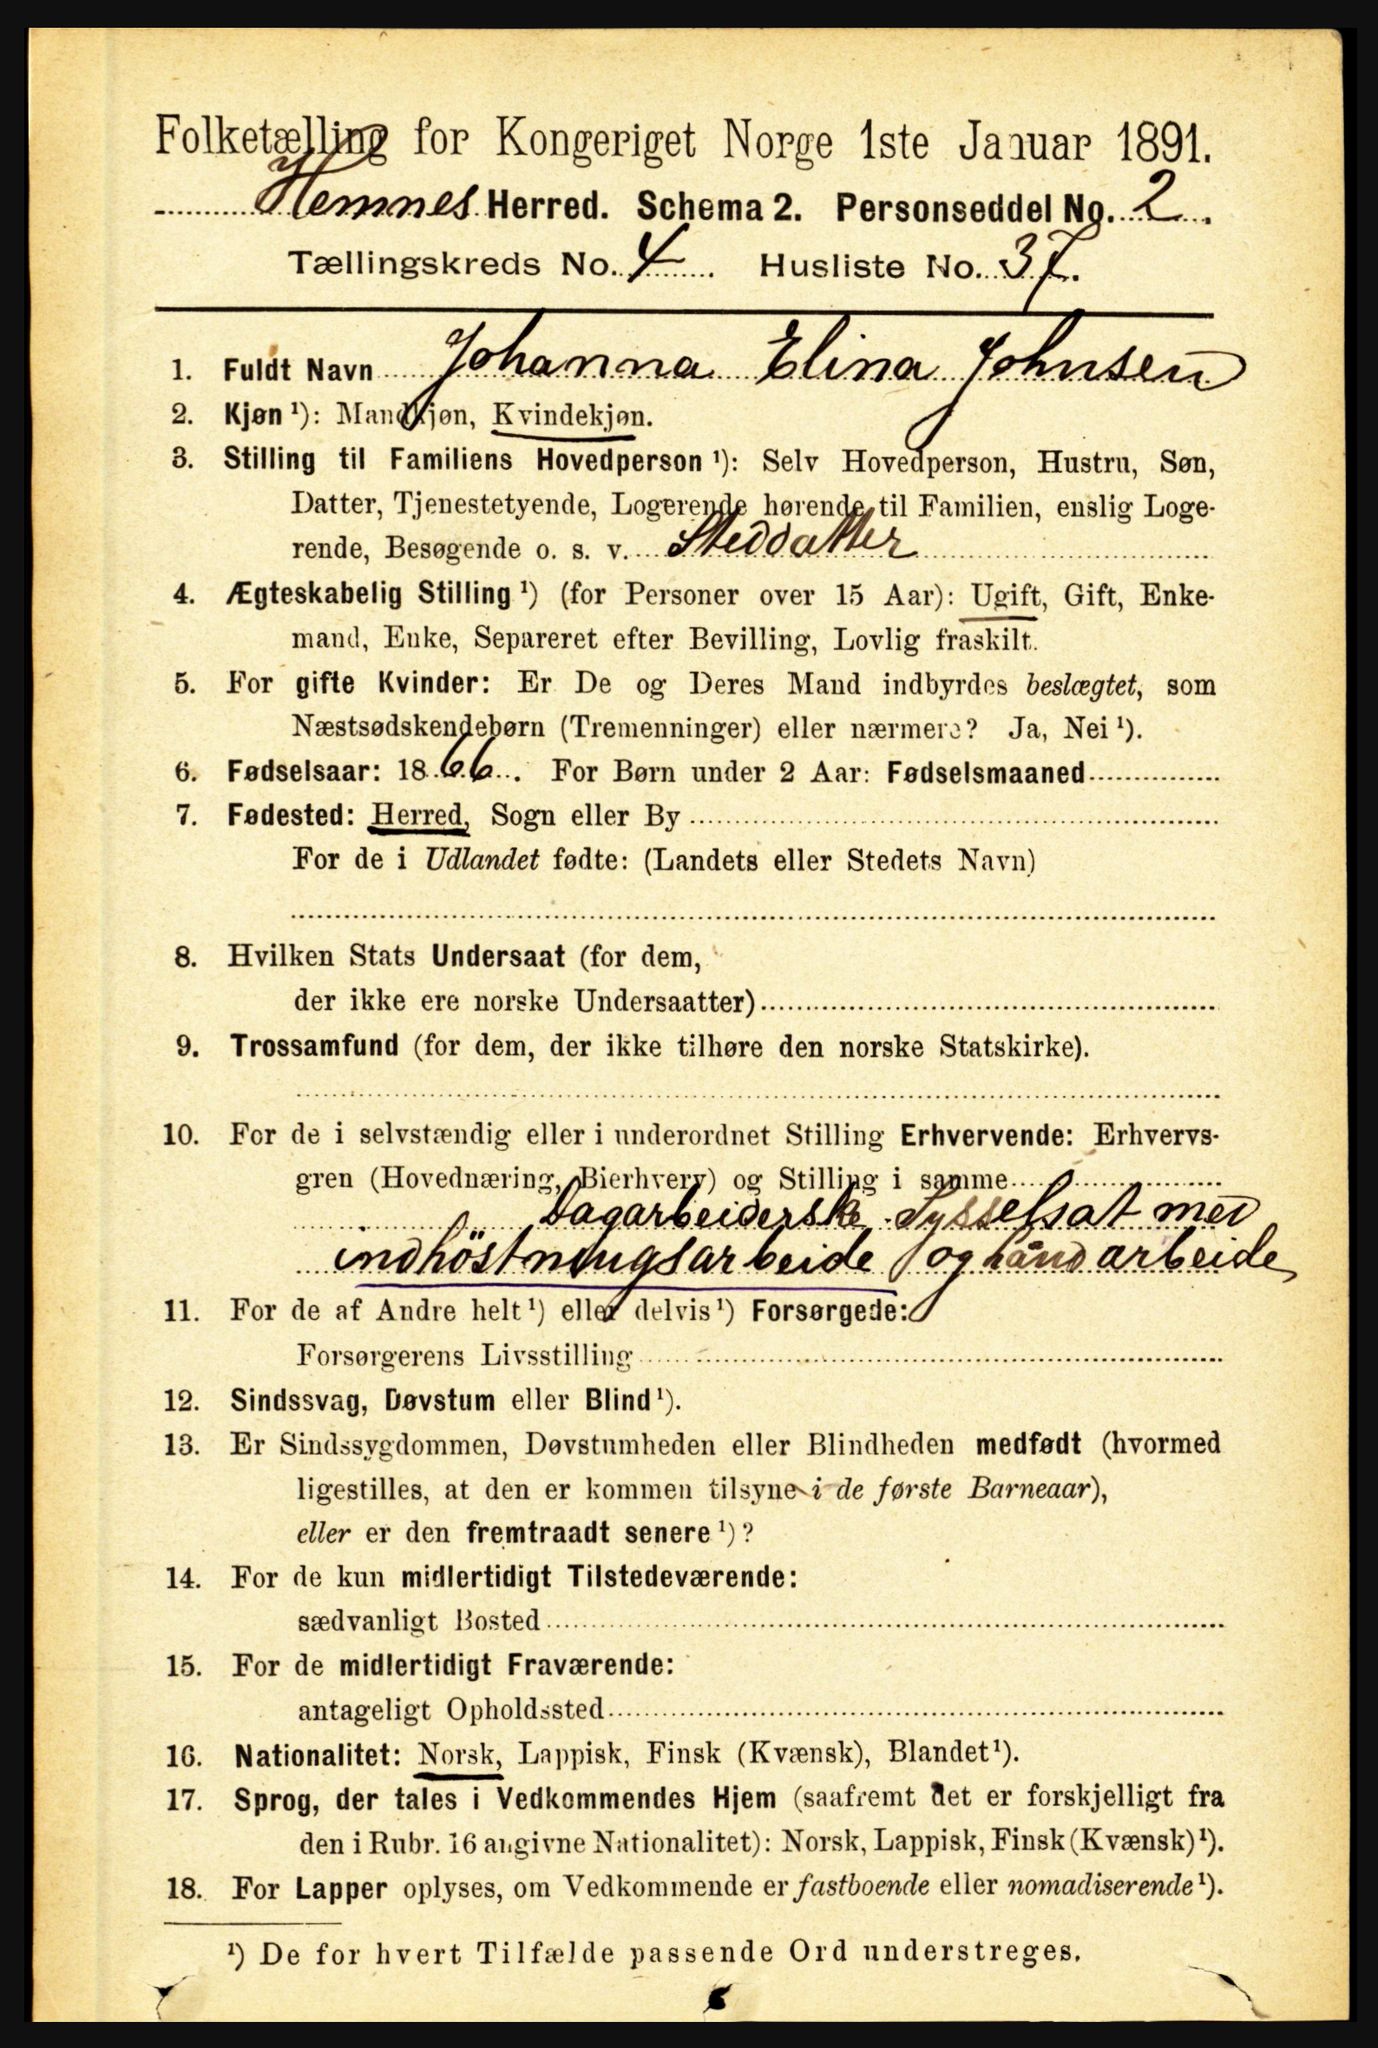 Folketælling for Kongeriget Norge 1ste Januar 1891.
Hemnes Herred. Schema 2. Personseddel No. 2.
Tællingskreds No. 4. Husliste No. 37.
1. Fuldt Navn Johanna Elina Johnsen
2. Kjøn ¹): Mandkjøn, Kvindekjøn.
3. Stilling til Familiens Hovedperson ¹): Selv Hovedperson, Hustru, Søn,
Datter, Tjenestetyende, Logerende hørende til Familien, enslig Loge-
rende, Besøgende o. s. v. Steddatter
4. Ægteskabelig Stilling ¹) (for Personer over 15 Aar): Ugift, Gift, Enke-
mand, Enke, Separeret efter Bevilling, Lovlig fraskilt.
5. For gifte Kvinder: Er De og Deres Mand indbyrdes beslægtet, som
Næstsødskendebørn (Tremenninger) eller nærmere? Ja, Nei ¹).
6. Fødselsaar: 1866. For Børn under 2 Aar: Fødselsmaaned
7. Fødested: Herred, Sogn eller By
For de i Udlandet fødte: (Landets eller Stedets Navn)
8. Hvilken Stats Undersaat (for dem,
der ikke ere norske Undersaatter)
9. Trossamfund (for dem, der ikke tilhøre den norske Statskirke).
10. For de i selvstændig eller i underordnet Stilling Erhvervende: Erhvervs-
gren (Hovednæring, Bierhverv) og Stilling i samme
Dagarbeiderske. Sysselsat med
indhöstningsarbeide og håndarbeide
11. For de af Andre helt ¹) eller delvis ¹) Forsørgede:
Forsørgerens Livsstilling
12. Sindssvag, Døvstum eller Blind ¹).
13. Er Sindssygdommen, Døvstumheden eller Blindheden medfødt (hvormed
ligestilles, at den er kommen tilsyne i de første Barneaar),
eller er den fremtraadt senere ¹)?
14. For de kun midlertidigt Tilstedeværende:
sædvanligt Bosted
15. For de midlertidigt Fraværende:
antageligt Opholdssted
16. Nationalitet: Norsk, Lappisk, Finsk (Kvænsk), Blandet ¹).
17. Sprog, der tales i Vedkommendes Hjem (saafremt det er forskjelligt fra
den i Rubr. 16 angivne Nationalitet): Norsk, Lappisk, Finsk (Kvænsk) ¹).
18. For Lapper oplyses, om Vedkommende er fastboende eller nomadiserende ¹).
¹) De for hvert Tilfælde passende Ord understreges.